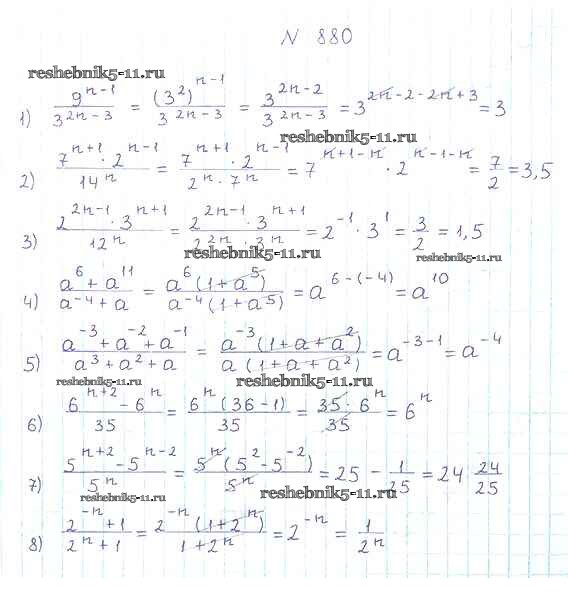 N 880
reshebnik5-11.ru
1) 9^(n-1) / 3^(2n-3) = (3^2)^(n-1) / 3^(2n-3) = 3^(2n-2) / 3^(2n-3) = 3^(2n-2-2n+3) = 3
reshebnik5-11.ru
2) 7^(n+1) · 2^(n-1) / 14^n = 7^(n+1) · 2^(n-1) / 2^n · 7^n = 7^(n+1-n) · 2^(n-1-n) = 7/2 = 3,5
3) 2^(2n-1) · 3^(n+1) / 12^n = 2^(2n-1) · 3^(n+1) / 2^(2n) · 3^n = 2^(-1) · 3^1 = 3/2 = 1,5
reshebnik5-11.ru reshebnik5-11.ru
4) a^6 + a^11 / a^(-4) + a = a^6 (1 + a^5) / a^(-4) (1 + a^5) = a^(6-(-4)) = a^10
5) a^(-3) + a^(-2) + a^(-1) / a^3 + a^2 + a = a^(-3) (1 + a + a^2) / a (1 + a + a^2) = a^(-3-1) = a^(-4)
reshebnik5-11.ru reshebnik5-11.ru
6) 6^(n+2) - 6^n / 35 = 6^n (36-1) / 35 = 35 · 6^n / 35 = 6^n
7) 5^(n+2) - 5^(n-2) / 5^n = 5^n (5^2 - 5^(-2)) / 5^n = 25 - 1/25 = 24 24/25
reshebnik5-11.ru reshebnik5-11.ru
8) 2^(-n) + 1 / 2^n + 1 = 2^(-n) (1 + 2^n) / 1 + 2^n = 2^(-n) = 1/2^n